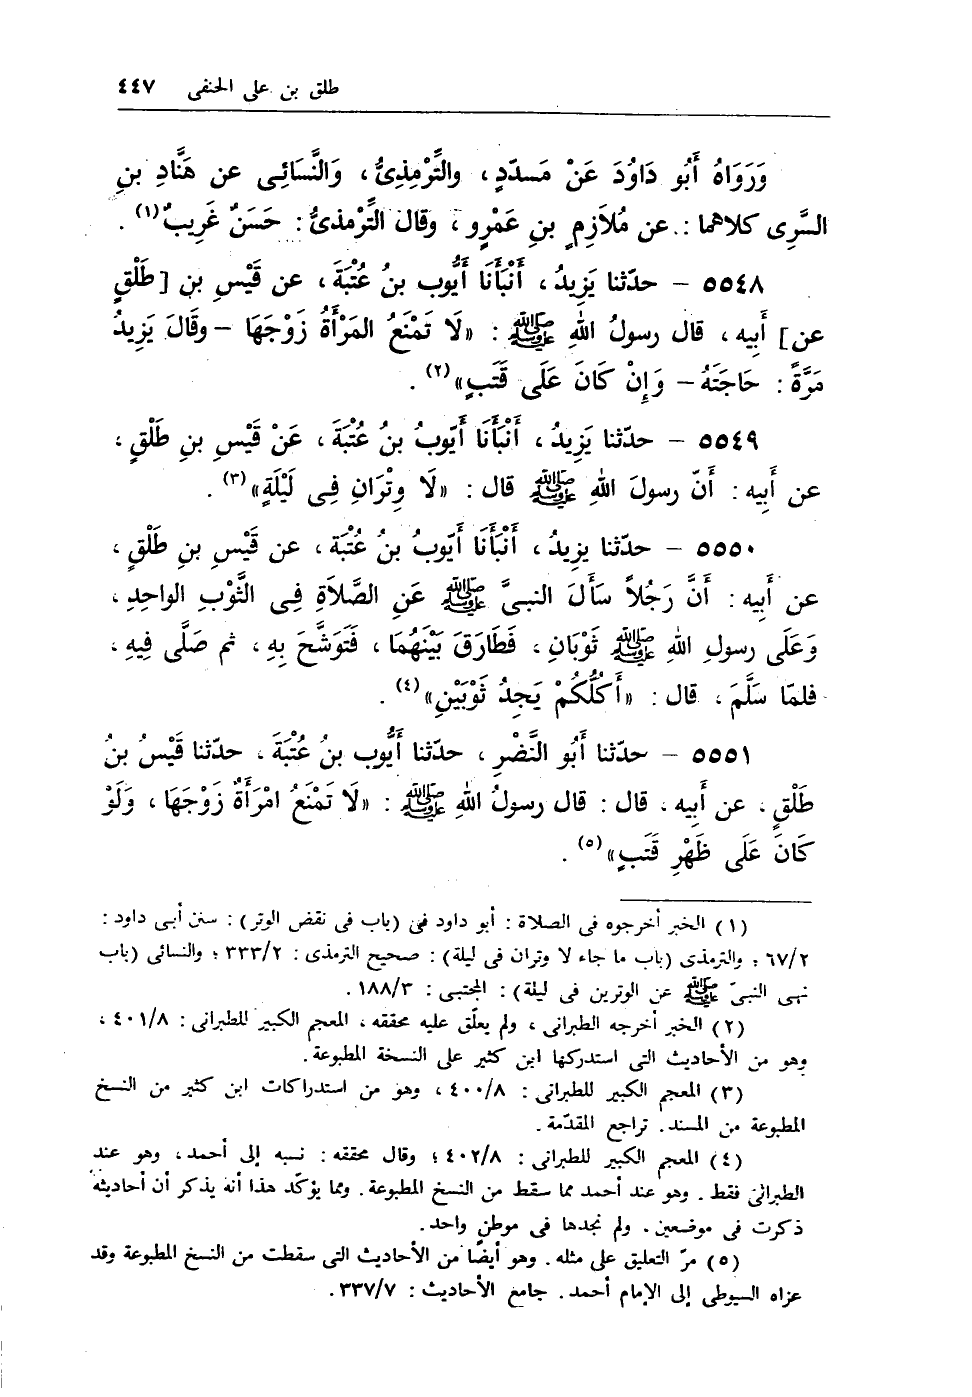 طلق بن على الحنفى ٤٤٧
وَرَوَاهُ أَبُو دَاوُدَ عَنْ مَسدّدٍ، والتِّرْمِذِىُّ، وَالنَّسَائِى عن هَنَّادِ بنِ
السَّرِى كلاهما : عن مُلَازِمِ بنِ عَمْرٍو، وقال التِّرْمذىُّ : حَسَنٌ غَرِيبٌ(١) .
٥٥٤٨ - حدّثنا يَزِيدُ، أَنْبَأَنَا أَيُّوب بنُ عُتْبَةَ، عن قَيْس بن [طَلْقٍ
عن] أَبِيه، قال رسولُ اللهِ ﷺ : «لَا تَمْنَعُ المَرْأَةُ زَوْجَهَا -وقَالَ يَزِيدُ
مَرَّةً : حَاجَتَهُ- وَإِنْ كَانَ عَلَى قَتَبٍ»(٢) .
٥٥٤٩ - حدّثنا يَزِيدُ، أَنْبَأَنَا أَيّوبُ بنُ عُتْبَةَ، عَنْ قَيْسِ بنِ طَلْقٍ،
عن أَبِيه : أَنّ رسولَ اللهِ ﷺ قال : «لَا وِتْرَانِ فِى لَيْلَةٍ»(٣) .
٥٥٥٠ - حدّثنا يزيدُ، أَنْبَأَنَا أَيّوبُ بنُ عُتْبَة، عن قَيْسِ بنِ طَلْقٍ،
عن أَبِيه : أَنَّ رَجُلاً سَأَلَ النبىَّ ﷺ عَنِ الصَّلَاةِ فِى الثَّوْبِ الواحِدِ،
وَعَلَى رسولِ اللهِ ﷺ ثَوْبَانِ، فَطَارَقَ بَيْنَهُمَا، فَتَوَشَّحَ بِهِ، ثم صَلَّى فِيهِ،
فلمّا سَلَّمَ، قال : «أَكُلُّكُمْ يَجِدُ ثَوْبَيْنِ»(٤) .
٥٥٥١ - حدّثنا أَبُو النَّضْرِ، حدّثنا أَيُّوب بنُ عُتْبَةَ، حدّثنا قَيْسُ بنُ
طَلْقٍ، عن أَبِيه، قال : قال رسولُ اللهِ ﷺ : «لَا تَمْنَعُ امْرَأَةٌ زَوْجَهَا، وَلَوْ
كَانَ عَلَى ظَهْرِ قَتَبٍ»(٥) .
(١) الخبر أخرجوه فى الصلاة : أبو داود فى (باب فى نقض الوتر) : سنن أبى داود :
٦٧/٢ ؛ والترمذى (باب ما جاء لا وتران فى ليلة) : صحيح الترمذى : ٣٣٣/٢ ؛ والنسائى (باب
نهى النبىّ ﷺ عن الوترين فى ليلة) : المجتبى : ١٨٨/٣ .
(٢) الخبر أخرجه الطبرانى، ولم يعلّق عليه محققه، المعجم الكبير للطبرانى : ٤٠١/٨ ،
وهو من الأحاديث التى استدركها ابن كثير على النسخة المطبوعة .
(٣) المعجم الكبير للطبرانى : ٤٠٠/٨ ، وهو من استدراكات ابن كثير من النسخ
المطبوعة من المسند. تراجع المقدّمة .
(٤) المعجم الكبير للطبرانى : ٤٠٢/٨ ؛ وقال محققه : نسبه إلى أحمد، وهو عند
الطبرانى فقط . وهو عند أحمد مما سقط من النسخ المطبوعة. ومما يؤكّد هذا أنه يذكر أن أحاديثه
ذكرت فى موضعين. ولم نجدها فى موطن واحد.
(٥) مرّ التعليق على مثله . وهو أيضًا من الأحاديث التى سقطت من النسخ المطبوعة وقد
عزاه السيوطى إلى الإمام أحمد. جامع الأحاديث : ٣٣٧/٧ .